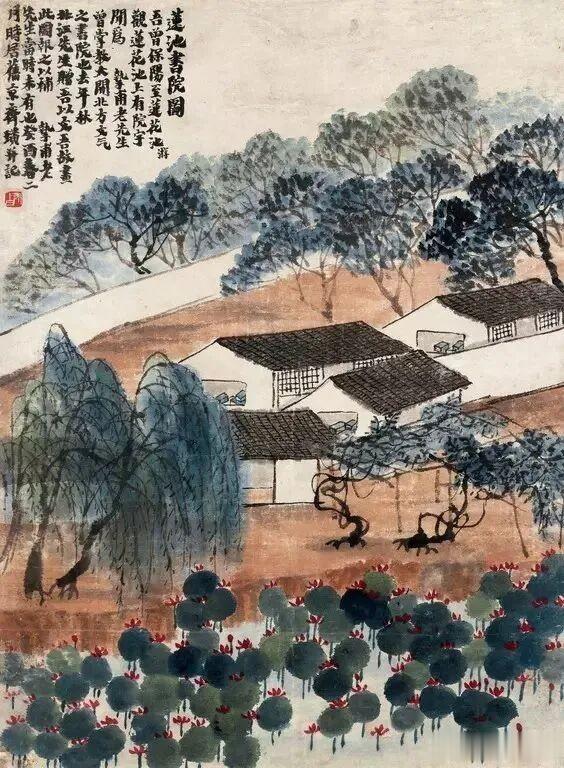 蓮池書院圖
吾曾保陽至蓮花池游
觀蓮花池上有院宇
聞爲 摯甫老先生
曾掌教大開北方文气
之書院也去年秋
北江先生贈吾以吾畫
此圖報之以補 摯甫老
先生當時未有也癸酉春二
月時居舊京齊璜并記